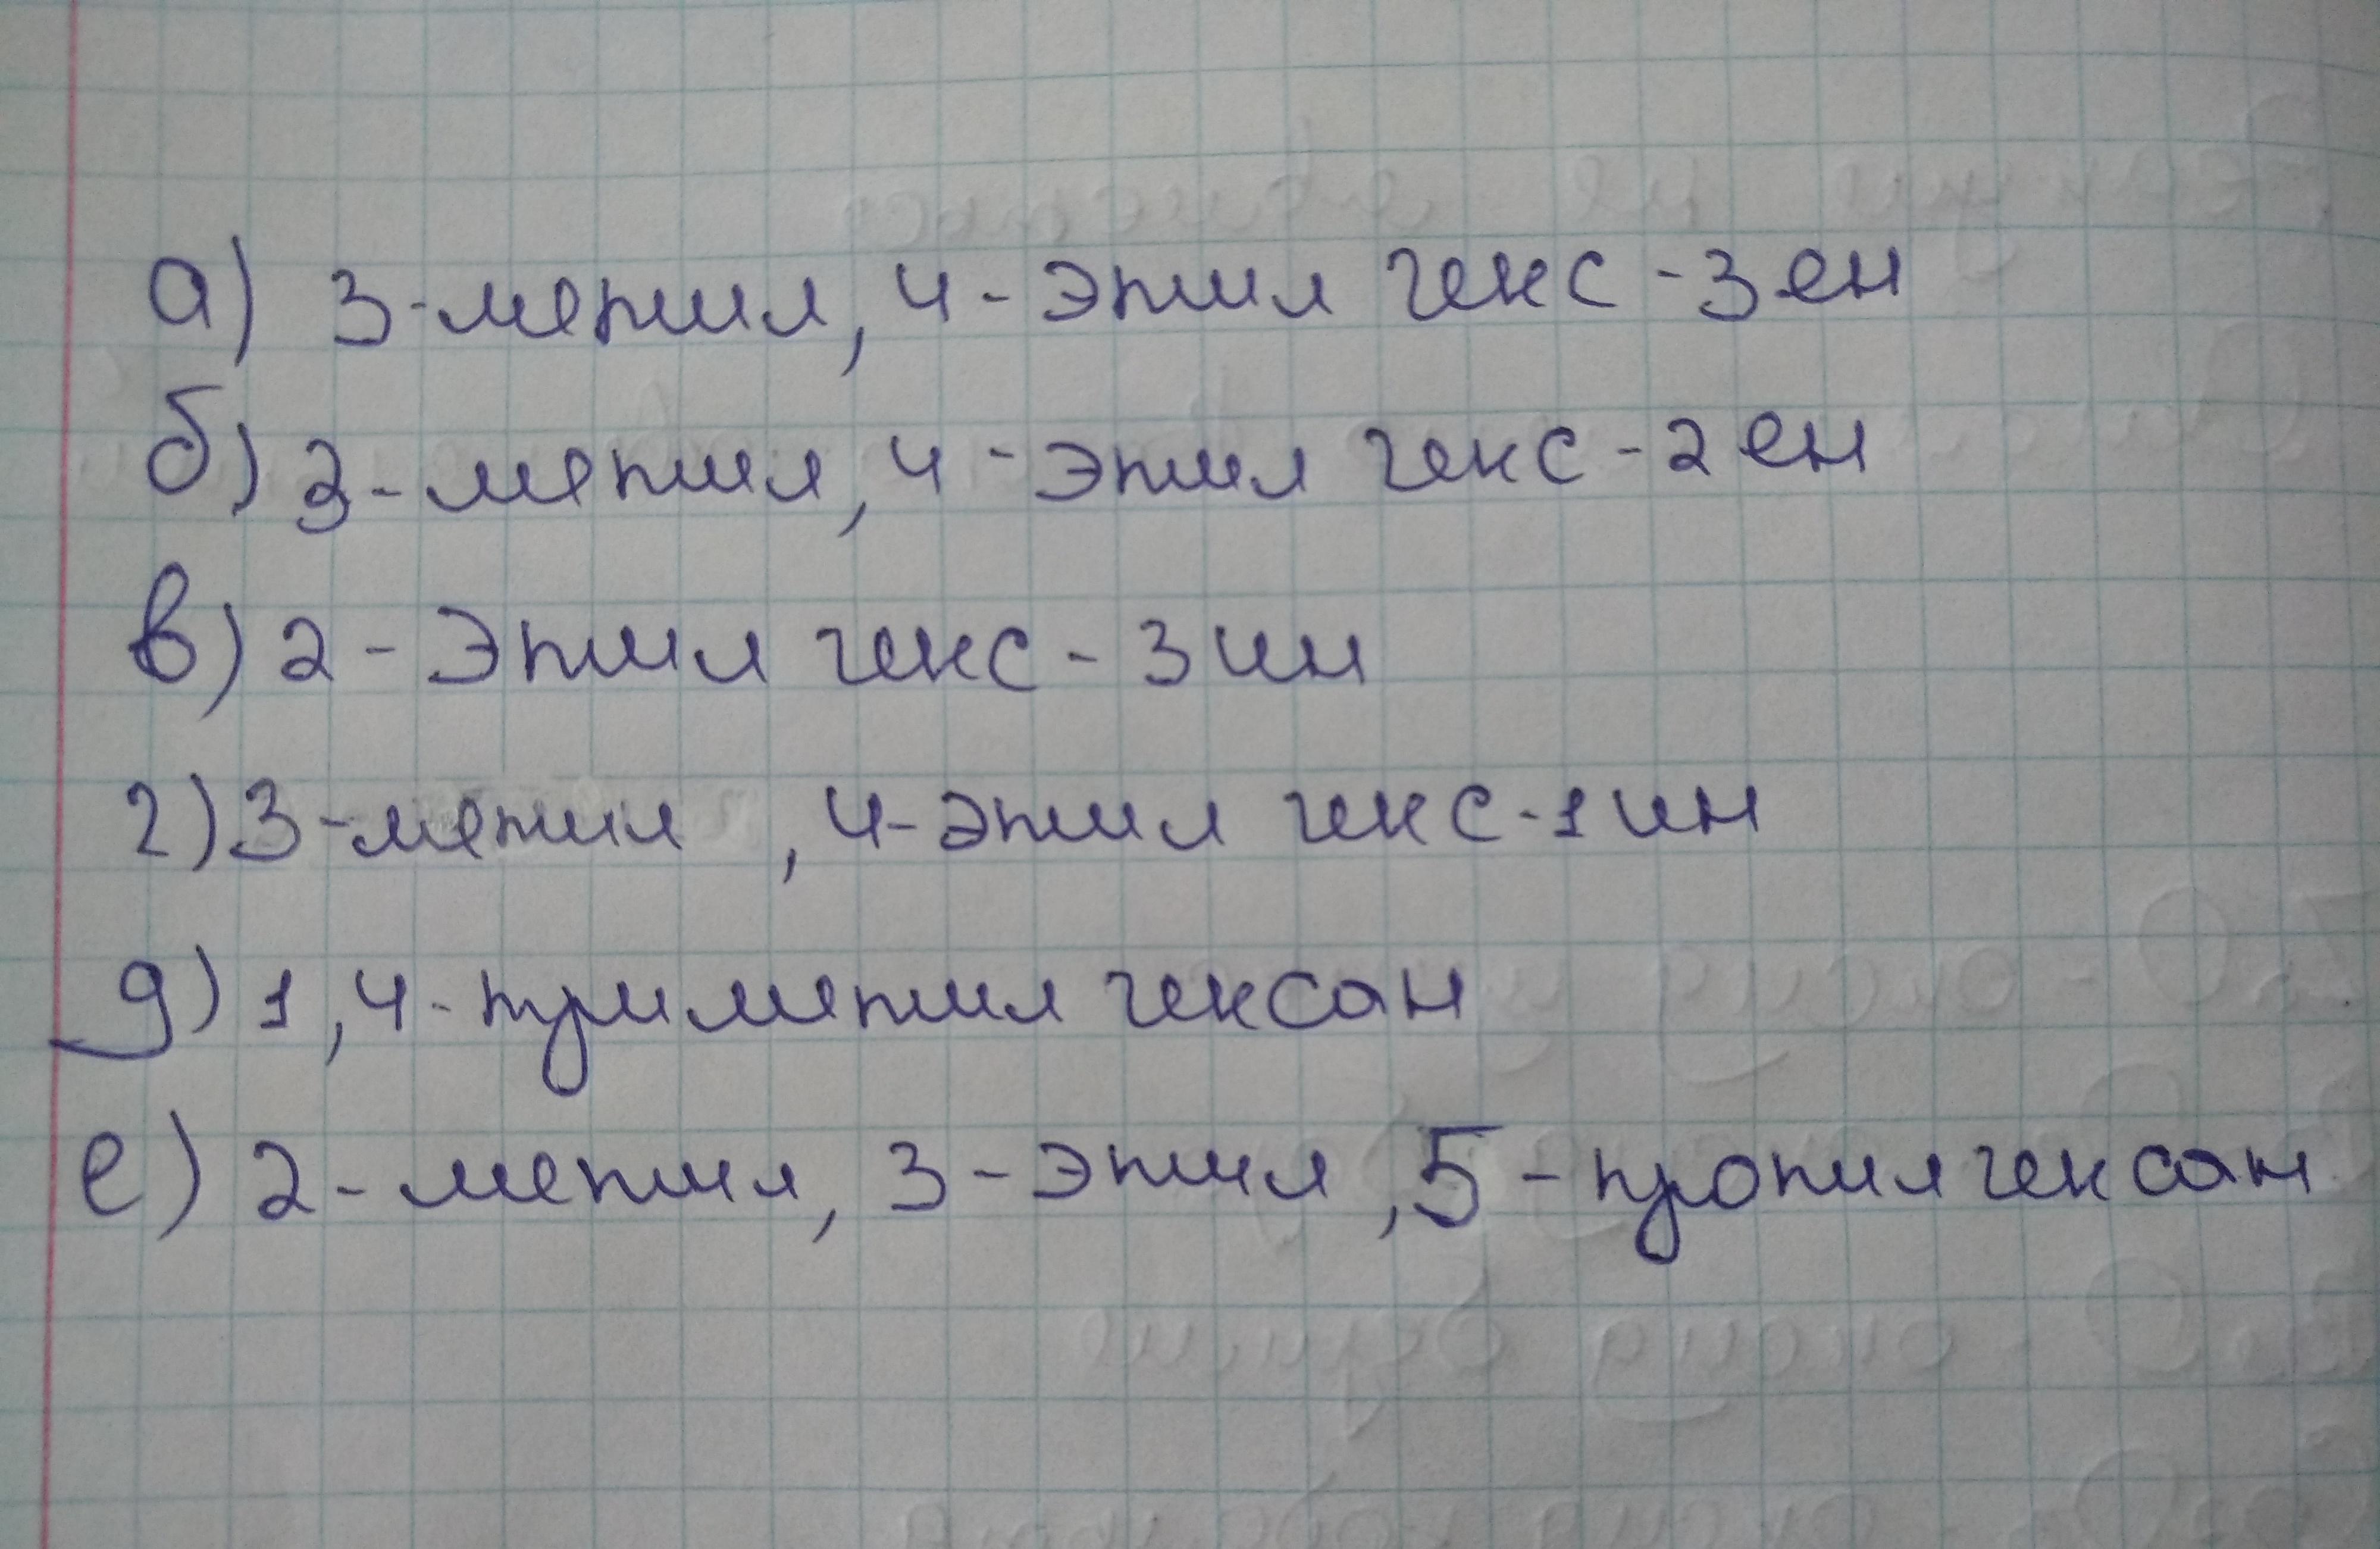 а) 3-метил, 4-этил гекс-3ен
б) 2-метил, 4-этил гекс-2ен
в) 2-Этил гекс-3ин
г) 3-метил , 4-этил гекс-1ин
д) 1,4-триметил гексан
е) 2-метил, 3-этил, 5-пропилгексан